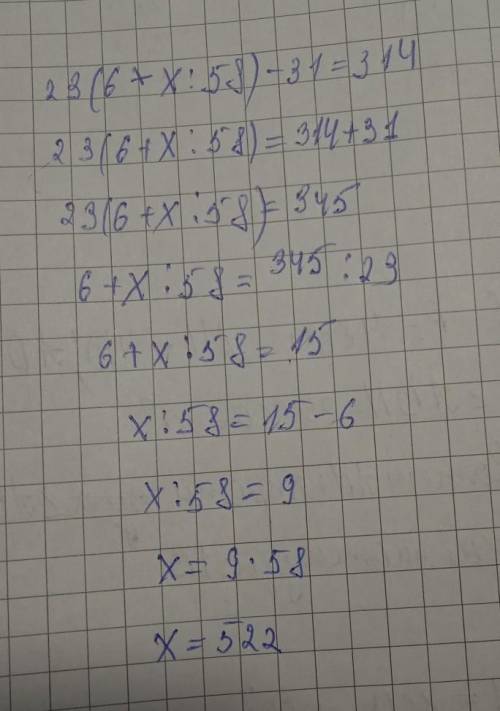 23(6+x:58)-31=314
23(6+x:58)=314+31
23(6+x:58)=345
6+x:58=345:23
6+x:58=15
x:58=15-6
x:58=9
x=9·58
x=522